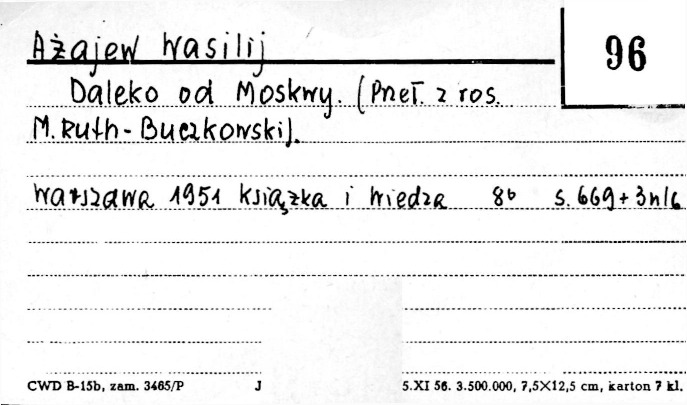 Ażajew Wasilij
96
Daleko od Moskwy. (Przeł. z ros.
M. Ruth-Buczkowski).
Warszawa 1951 Książka i Wiedza 8° s. 669 + 3nlb
CWD B-15b, zam. 3465/P J 5.XI 56. 3.500.000, 7,5×12,5 cm, karton 7 kl.